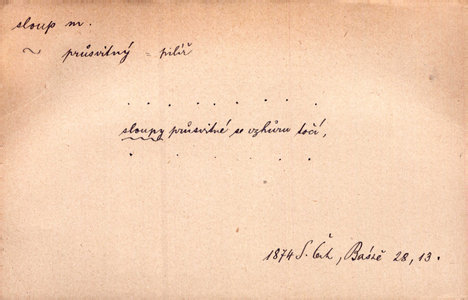 sloup m.
~ průsvitný = pilíř
. . . . . . . . .
sloupy průsvitné se vzhůru točí,
. . . . . .
1874 S. Čch, Básně 28, 13.